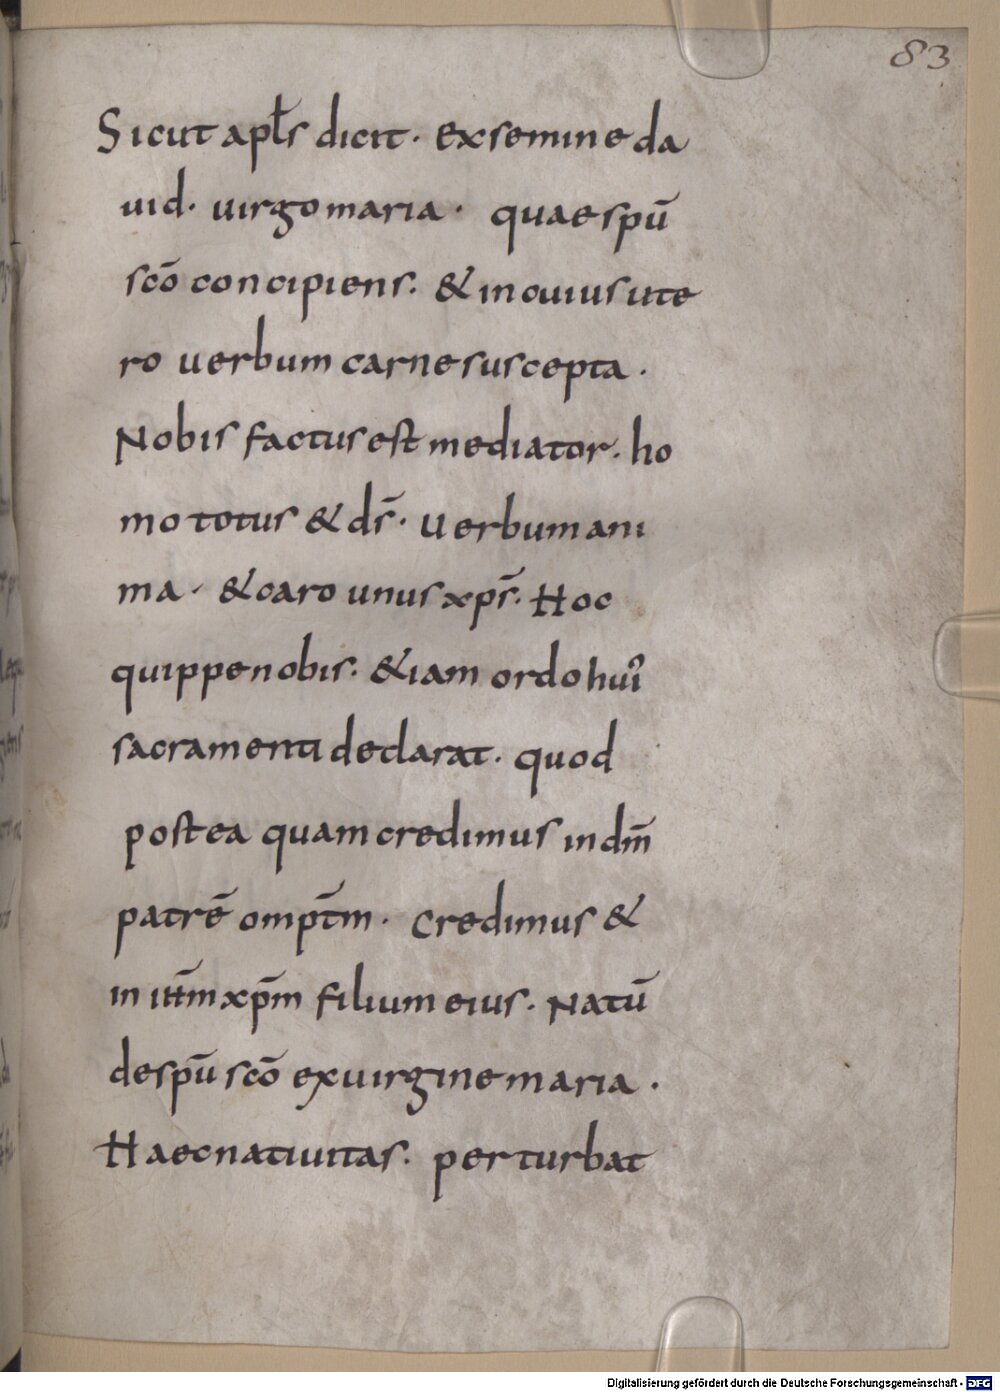 83
Sicut apƚs dicit. Exsemine da
uid. uirgo maria. quae spū
scō concipiens. & in cuius ute
ro uerbum carne suscepta.
Nobis factus est mediator. ho
mo totus & dī̄s. Uerbum ani
ma. & caro unus xp̄s. Hoc
quippe nobis. &iam ordo hui᾽
sacramenti declarat. quod
postea quam credimus in dm̄
patrē omp̄tm. Credimus &
in ih̄m xp̄m filium eius. Natū
de spū scō ex uirgine maria.
Haec natiuitas. perturbat
Digitalisierung gefördert durch die Deutsche Forschungsgemeinschaft - DFG